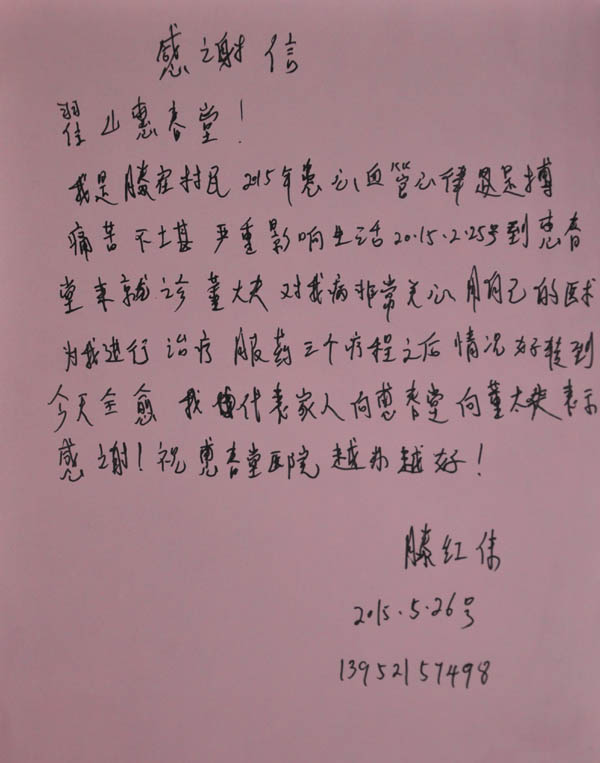 感谢信
翟山惠春堂!
我是滕寨村民 2015年患心血管心律早搏
痛苦不堪 严重影响生活 2015.2.25号到惠春
堂来就诊 董大夫对我病非常关心 用自己的医术
为我进行治疗 服药三个疗程之后 情况好转到
今天全愈 我代表家人向惠春堂向董大夫表示
感谢!祝惠春堂医院越办越好!
滕红伟
2015.5.26号
13952157498